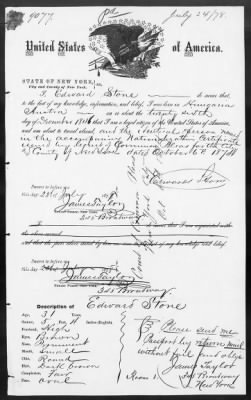 9077.
July 24/78.
United States of America.
STATE OF NEW YORK,
City and County of New York.
I, Edward Stone do swear that,
to the best of my knowledge, information, and belief, I was born in Hungaria
Austria on or about the twenty sixth
day of November 1846 that I am a legal citizen of the United States of America,
am about to travel abroad, and the identical person named
in the accompanying Naturalization Certificate
issued by Court of Common Pleas for the City
& County of New York dated October 16 18
Sworn to before me
this 23d July 18
James Taylor
251 Broadway
Edward Stone
Sworn to before me
this
James Taylor
251 Broadway
Description of Edward Stone
Age, 31
Stature, 5 Feet, Inches English
Forehead, High
Eyes, Brown
Nose, Prominent
Mouth, Small
Chin, Round
Hair, Dark Brown
Complexion, Fair
Face, oval
Please send me
Passport by return mail
without fail and oblige
James Taylor
Room 251 Broadway
New York